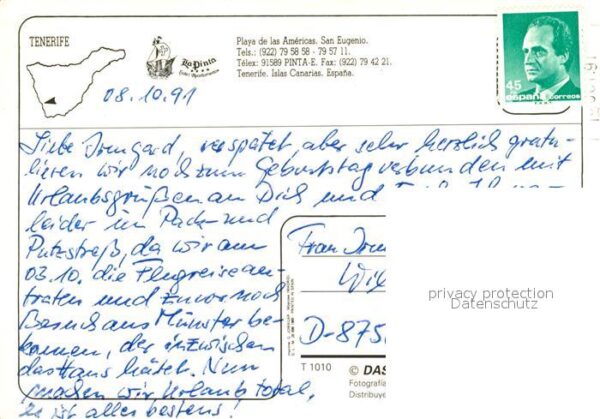 TENERIFE
La Pinta
Playa de las Américas. San Eugenio.
Tels.: (922) 79 58 58 - 79 57 11.
Télex: 91589 PINTA-E. Fax: (922) 79 42 21.
Tenerife. Islas Canarias. España.
45
españa correos
08.10.91
Liebe Irmgard, verspätet, aber sehr herzlich gratu-
lieren wir noch zum Geburtstag verbunden mit
Urlaubsgrüßen an Dich und
leider im Pack- und
Putzstreß, da wir am
03.10. die Flugreise an-
traten und zuvor noch
Besuch aus Münster be-
kamen, der inzwischen
das Haus hütet. Nun
machen wir Urlaub total,
es ist alles bestens!
Frau Irm
D-875
privacy protection
Datenschutz
T 1010
© DAS
Fotografía
Distribuye